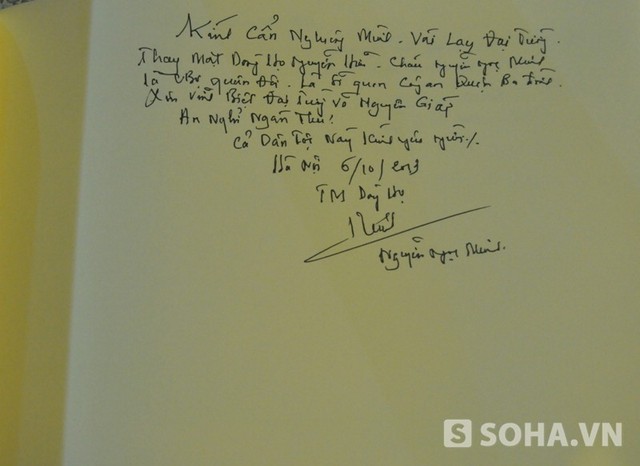 Kính Cẩn Nghiêng Mình. Vái Lạy Đại Tướng.
Thay Mặt Dòng Họ Nguyễn Cháu Nguyễn Ngọc Minh
là quân Đội. Là Sĩ quan Công an Quận Ba Đình.
Xin Vĩnh Biệt Đại Tướng Võ Nguyên Giáp
An Nghỉ Ngàn Thu!
Cả Dân Tộc Này Kính yêu người./.
Hà Nội 6/10/2013
TM Dòng Họ
Nguyễn Ngọc Minh.
S SOHA.VN